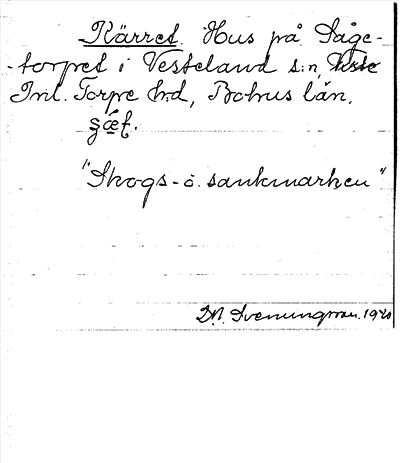 Kärret. Hus på Såge-
-torpet i Vesteland s:n,
Inl. Torpe hd, Bohus län.
"Skogs- o. sankmarken"
D.N. Svenungsson. 1920